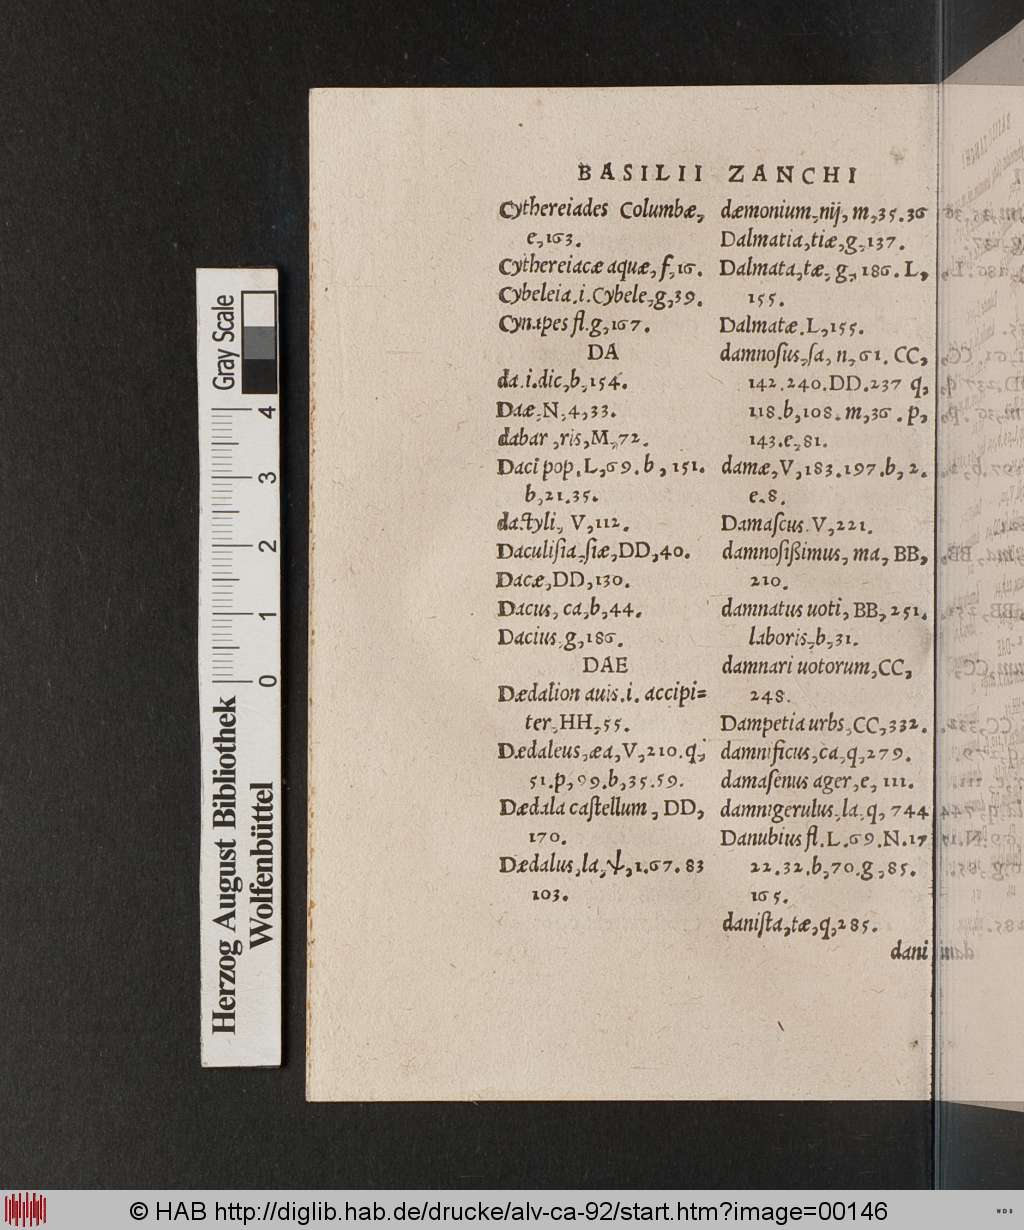 BASILII ZANCHI
Cythereiades Columbæ,
e,163.
Cythereiacæ aquæ, f,16.
Cybeleia.i.Cybele,g,39.
Cynapes fl.g,167.
DA
da.i.dic,b,154.
Daæ,N,4,33.
dabar,ris,M,72.
Daci pop.L,69.b,151.
b,21.35.
dactyli, V,112.
Daculisia,siæ,DD,40.
Dacæ,DD,130.
Dacus, ca,b,44.
Dacius,g,186.
DAE
Dædalion auis.i. accipi=
ter,HH,55.
Dædaleus,æa,V,210.q,
51.p,99.b,35.59.
Dædala castellum, DD,
170.
Dædalus,la,ψ,1.67.83
103.
dæmonium,nij,m,35.36
Dalmatia,tiæ,g,137.
Dalmata,tæ,g,186.L,
155.
Dalmatæ.L,155.
damnosus,sa,n,61.CC,
142.240.DD.237 q,
118.b,108.m,36.p,
143.e,81.
damæ,V,183.197.b,2.
e.8.
Damascus.V,221.
damnosißimus, ma, BB,
210.
damnatus uoti, BB, 251.
laboris,b,31.
damnari uotorum,CC,
248.
Dampetia urbs,CC,332.
damnificus,ca,q,279.
damasenus ager,e,111.
damnigerulus,la,q,744
Danubius fl.L.69.N.17
22.32.b,70.g,85.
165.
danista,tæ,q,285.
dani
Gray Scale
4
3
2
1
0
Herzog August Bibliothek
Wolfenbüttel
© HAB http://diglib.hab.de/drucke/alv-ca-92/start.htm?image=00146